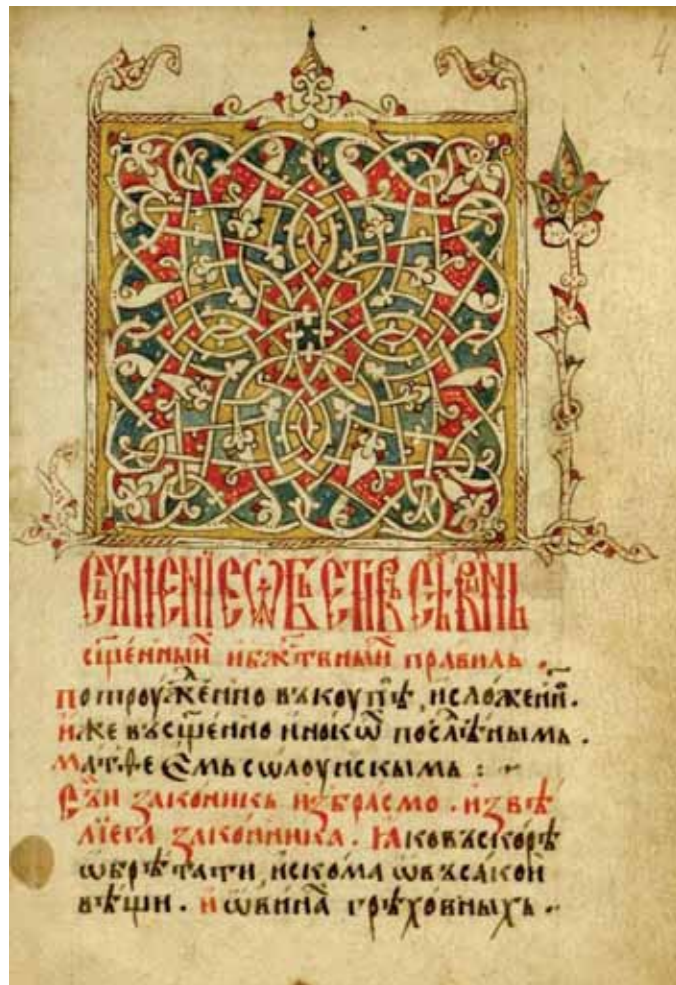 4
СЪЧИНЕНІЕ ѠБЪЕТІИ ВЪСѢ ВИНЬ
сщ҃е́нныи и бж҃твныи правиль .
Потроуже́нно въкоупѣ, и сложени .
И́же въ сщ҃е́нно и́нокѡ послѣ́нымь .
Матѳеѡмь сѡлоунскымь : ~
Съ́и законикь избрасмо . из вѣ
лїега зако́нника . Ꙗко въскорѣ
ѡбрѣ́тати, иско́ма ѡ въсакой
вѣ́щи . и ѡ вина грѣхо́вныхъ .